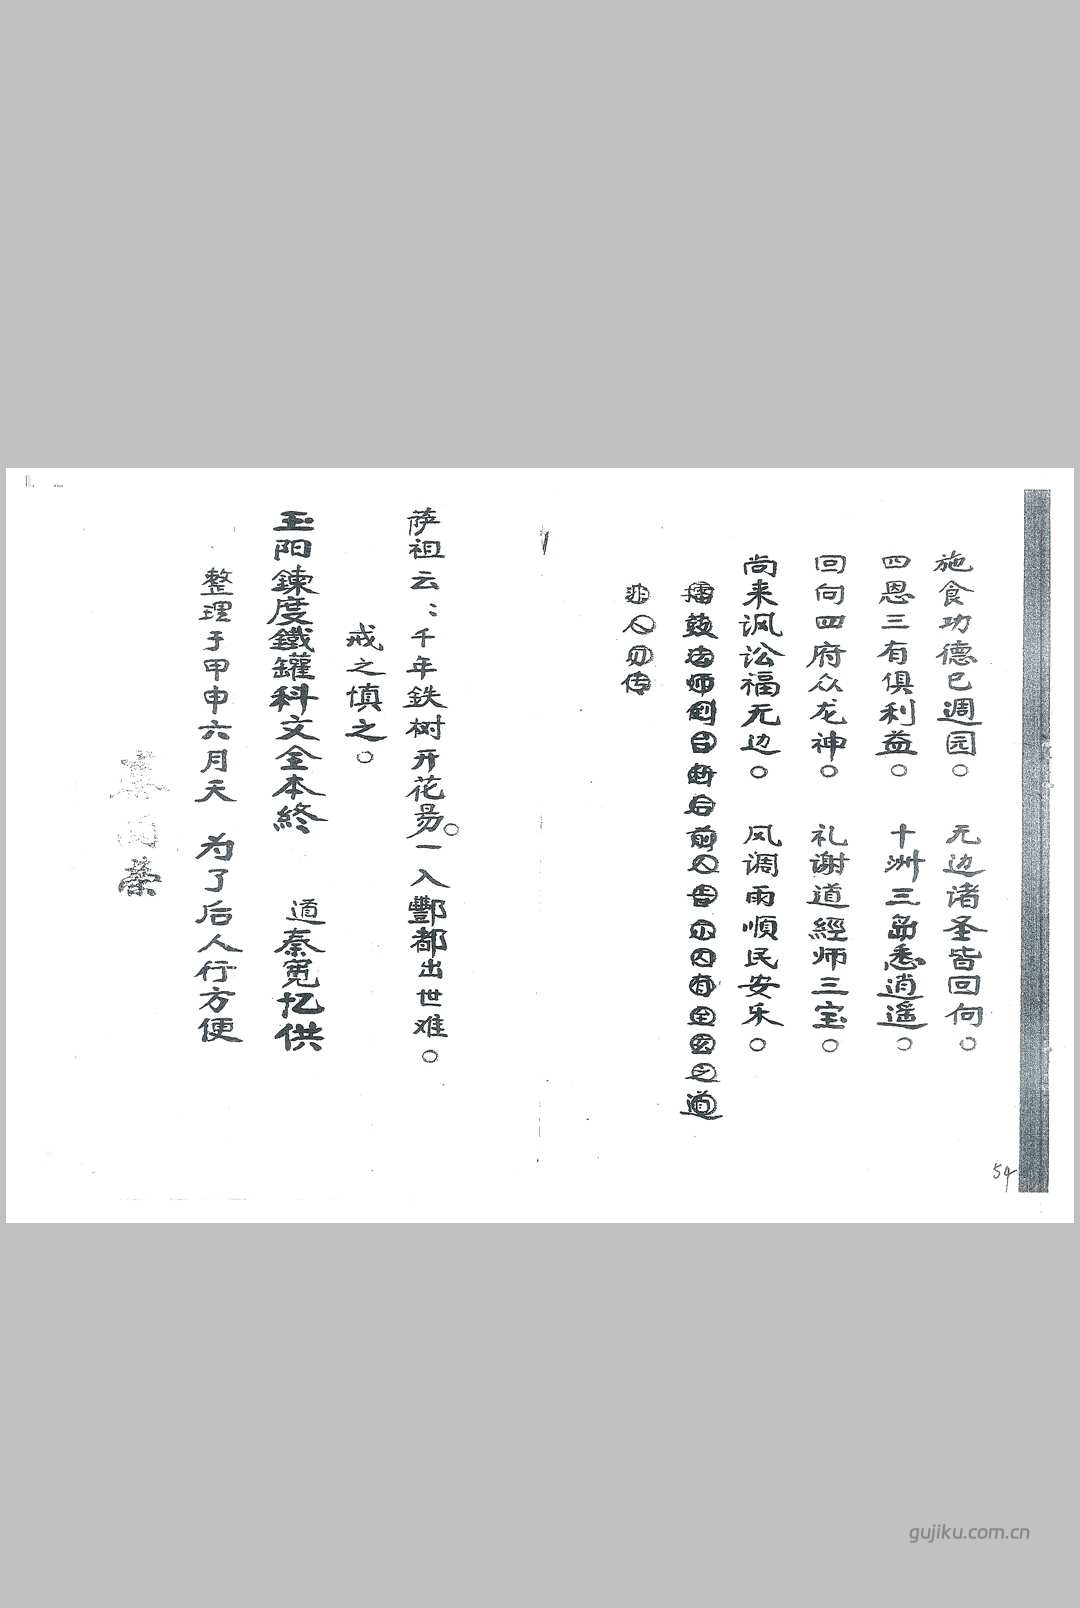 施食功德已週园。 无边诸圣皆回向。
四恩三有俱利益。 十洲三岛悉逍遥。
回向四府众龙神。 礼谢道經师三宝。
尚来讽讼福无边。 风调雨順民安乐。
擂鼓法师到台 后前人告示 有 玄之道
非人勿传
54
萨祖云：千年鉄树开花易。一入酆都出世难。
戒之慎之。
玉阳鍊度鐵罐科文全本終 道秦 忆供
整理于甲申六月天 为了后人行方便
gujiku.com.cn